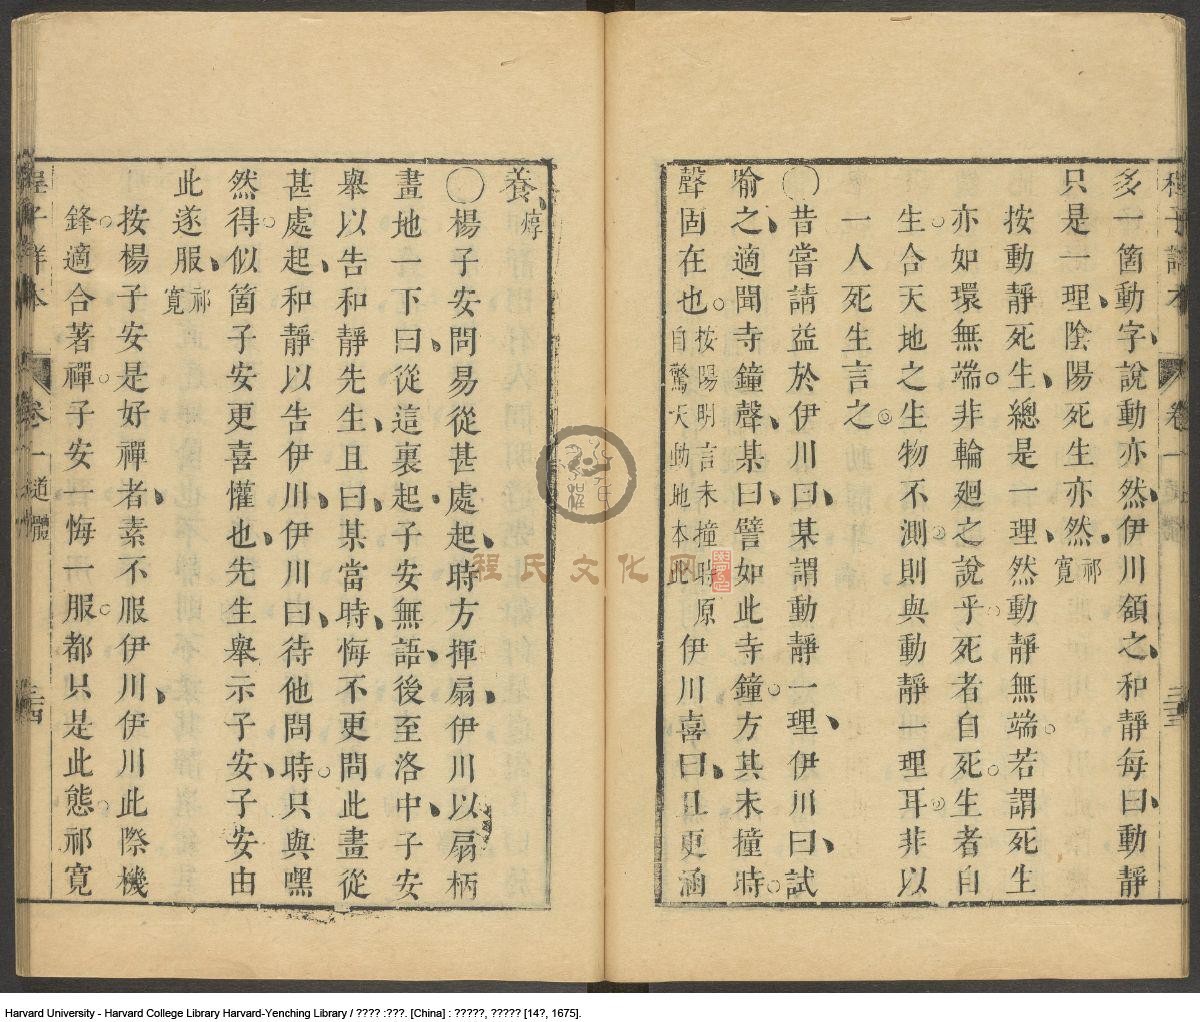 多一箇動字說動亦然伊川頷之和靜每曰動靜
只是一理陰陽死生亦然祁寬
按動靜死生總是一理然動靜無端若謂死生
亦如環無端非輪廻之說乎死者自死生者自
生合天地之生物不測則與動靜一理耳非以
一人死生言之
〇昔嘗請益於伊川曰某謂動靜一理伊川曰試
喻之適聞寺鐘聲某曰譬如此寺鐘方其未撞時
聲固在也按陽明言未撞時原自驚天動地本此伊川喜曰且更涵
卷一
三三
養焞
〇楊子安問易從甚處起時方揮扇伊川以扇柄
畫地一下曰從這裏起子安無語後至洛中子安
舉以告和靜先生且曰某當時悔不更問此畫從
甚處起和靜以告伊川伊川曰待他問時只與嘿
然得似箇子安更喜懽也先生舉示子安子安由
此遂服祁寬
按楊子安是好禪者素不服伊川伊川此際機
鋒適合著禪子安悔一服都只是此態祁寬
程子詳本
卷一道體
三四
程氏文化网
Harvard University - Harvard College Library Harvard-Yenching Library / ???? :???. [China] : ?????, ????? [14?, 1675].